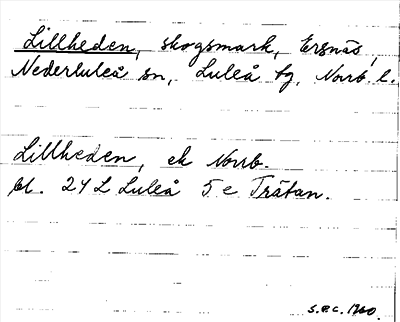 Lillheden, skogsmark, Ersnäs,
Nederluleå sn, Luleå tg, Norrb. l.
Lillheden, ek Norrb.
bl. 24 L Luleå 5 e Trätan.
S.P.C. 1960.